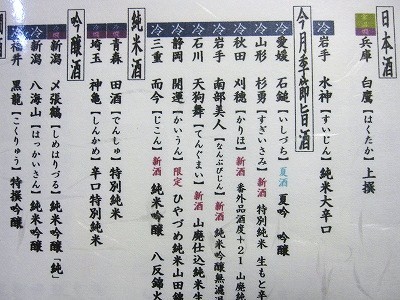 日本酒
兵庫 白鷹【はくたか】上撰
冷 岩手 水神【すいじん】純米大辛口
今月季節旨酒
冷 愛媛 石鎚【いしづち】夏酒 夏吟 吟醸
冷 山形 杉勇【すぎいさみ】新酒 特別純米 生もと辛
冷 秋田 刈穂【かりほ】新酒 番外品酒度+21 山廃純
冷 岩手 南部美人【なんぶびじん】新酒 純米吟醸無濾過
冷 石川 天狗舞【てんぐまい】新酒 山廃仕込純米生
冷 静岡 開運【かいうん】限定 ひやづめ純米山田錦
冷 三重 而今【じこん】新酒 純米吟醸 八反錦火
純米酒
冷 青森 田酒【でんしゅ】特別純米
埼玉 神亀【しんかめ】辛口特別純米
吟醸酒
新潟 〆張鶴【しめはりづる】純米吟醸「純」
冷 新潟 八海山【はっかいさん】純米吟醸
冷 福井 黒龍【こくりゅう】特撰吟醸